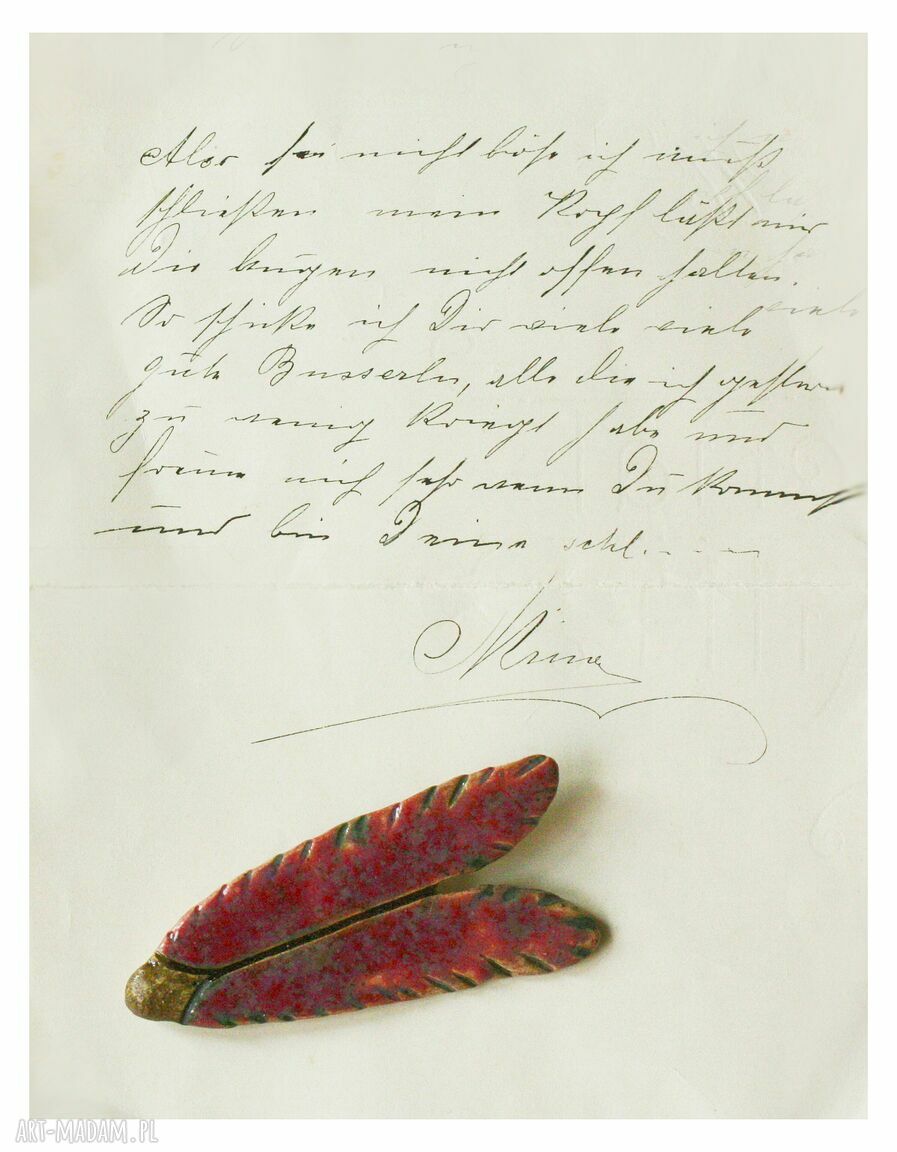 Aber sei nicht böse ich muß
schließen mein Kopf läßt mir
Die Augen nicht offen halten.
So schicke ich Dir viele viele viele
gute Busserln, alle die ich gestern
zu wenig kriegt habe und
freue mich sehr wenn Du kommst
und bin Deine schl....
Mina
ART-MADAM.PL